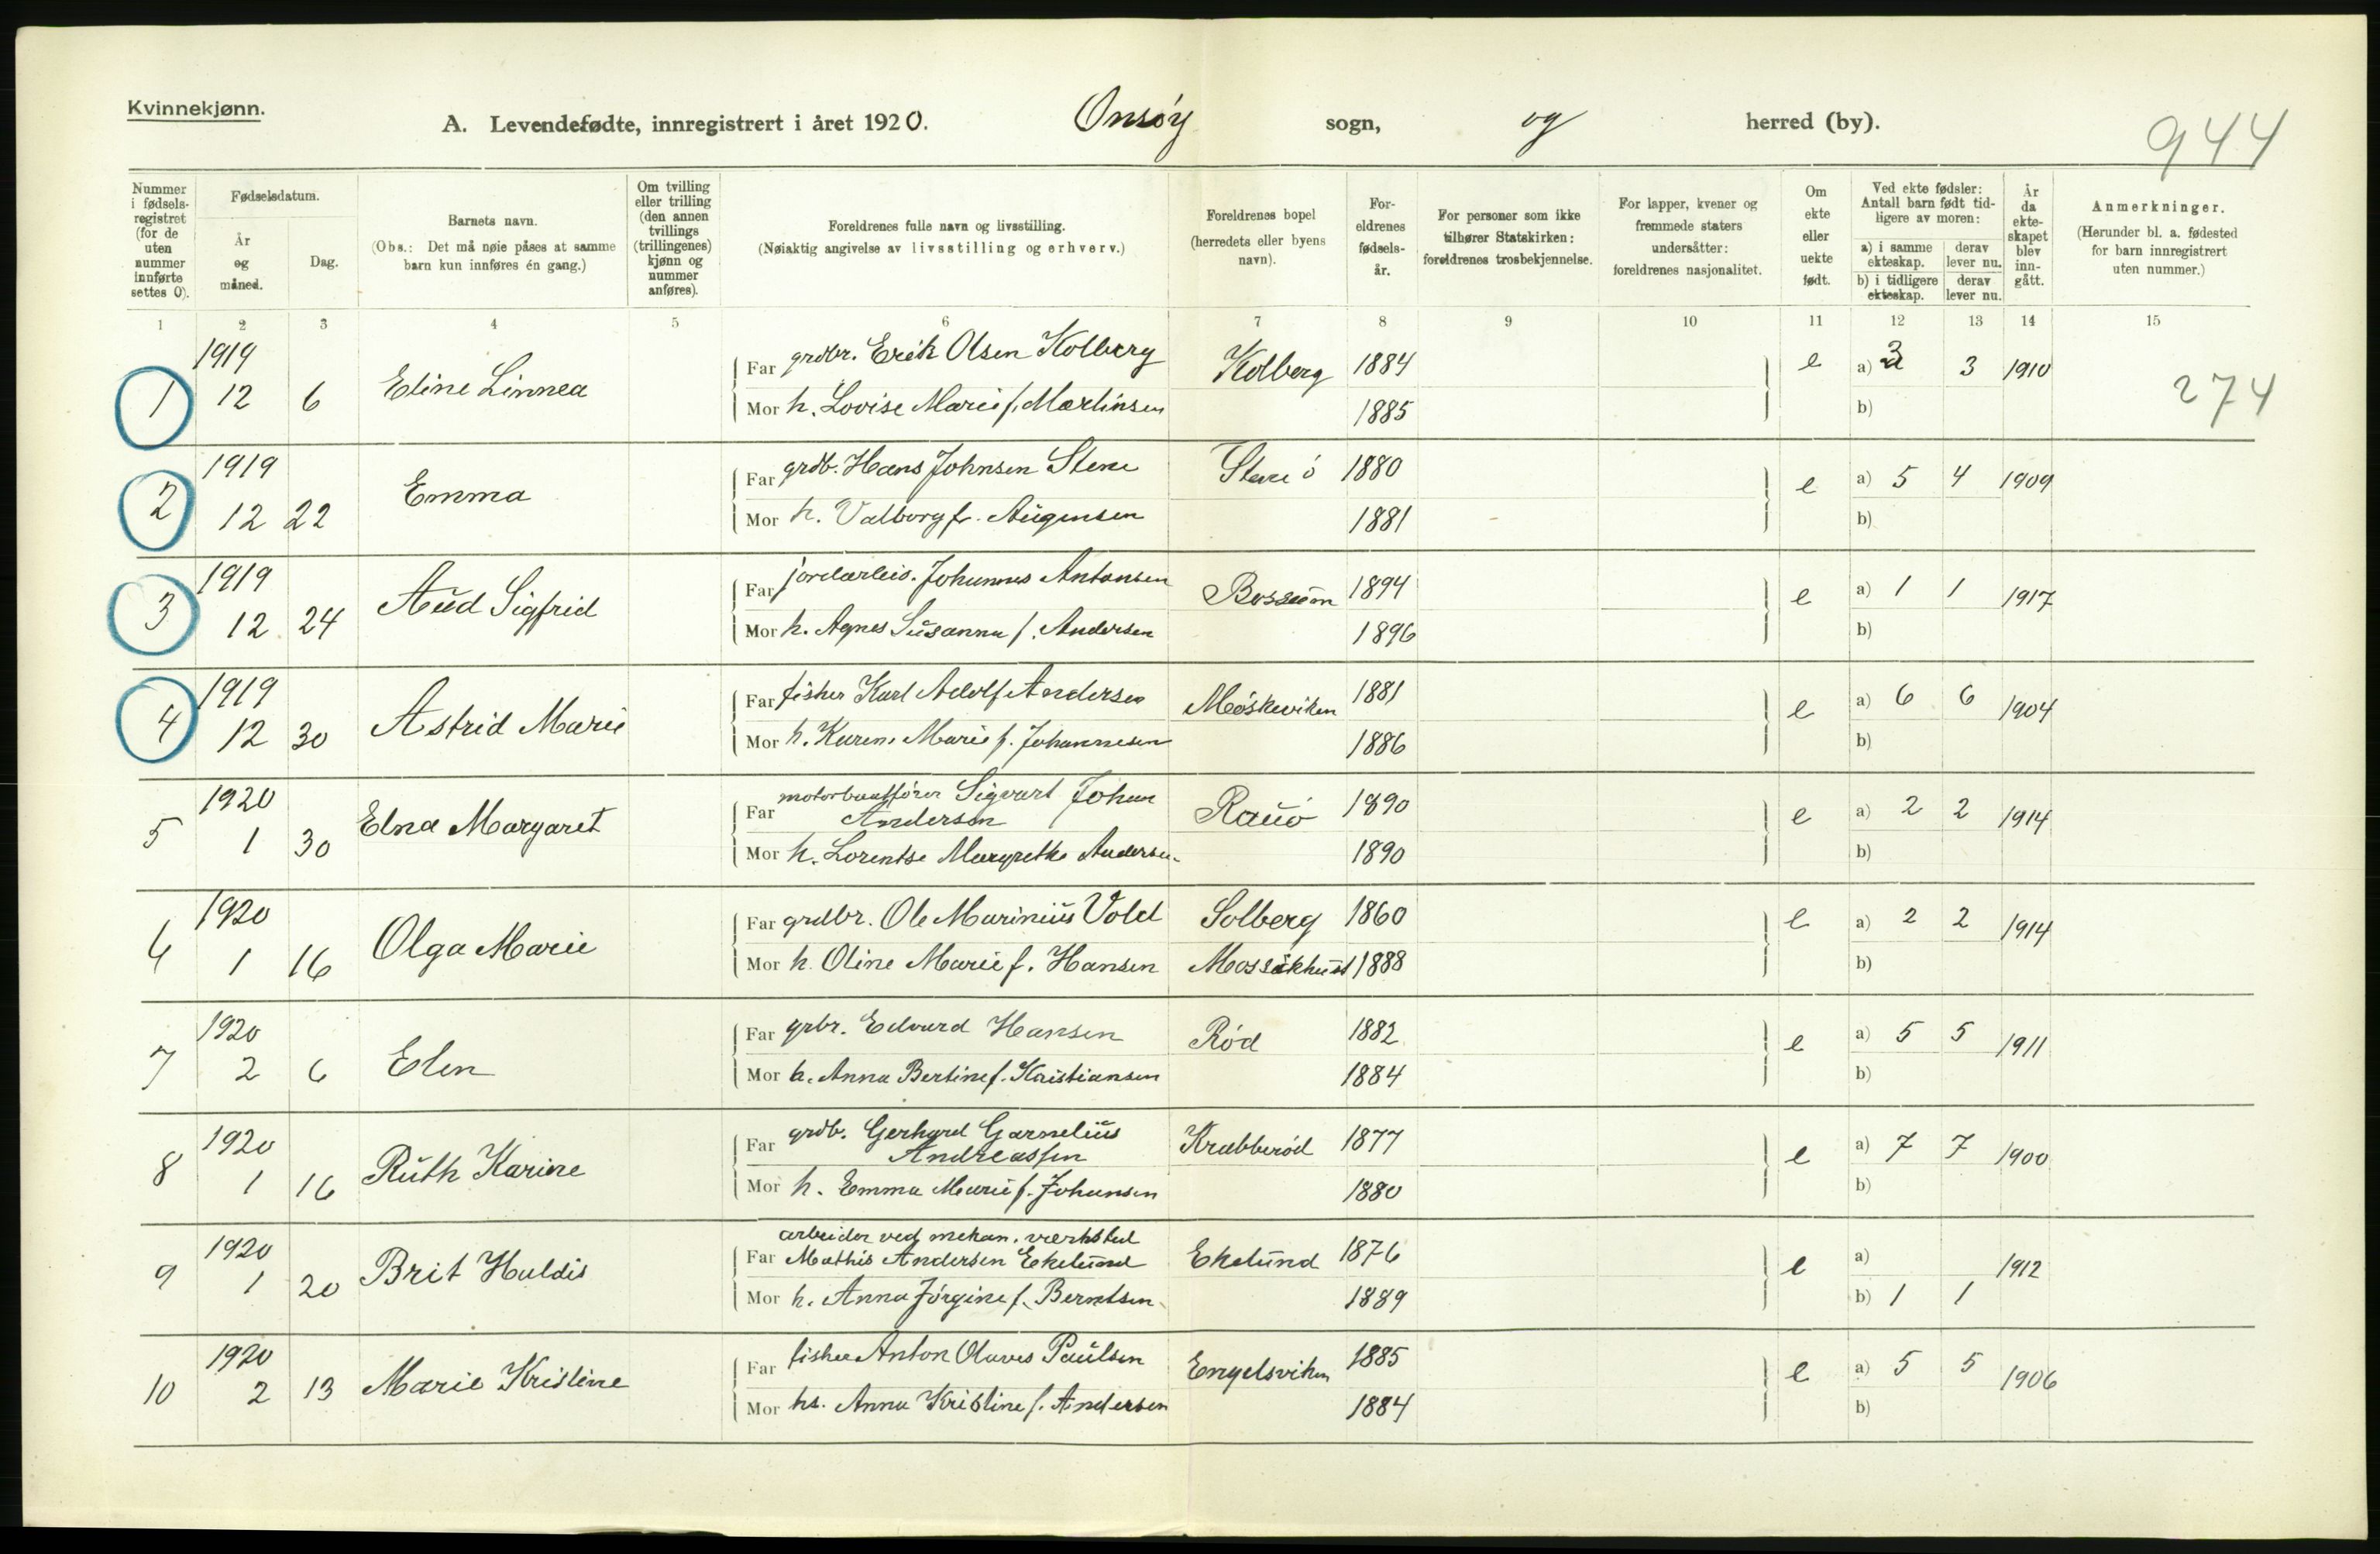 Kvinnekjønn.
A. Levendefødte, innregistrert i året 1920. Onsøy sogn, og herred (by).
944
Nummer i fødselsregistret (for de uten nummer innførte settes 0).
Fødselsdatum.
År og måned.
Dag.
Barnets navn.
(Obs.: Det må nøie påses at samme barn kun innføres én gang.)
Om tvilling eller trilling (den annen tvillings (trillingenes) kjønn og nummer anføres).
Foreldrenes fulle navn og livsstilling.
(Nøiaktig angivelse av livsstilling og erhverv.)
Foreldrenes bopel (herredets eller byens navn).
Foreldrenes fødselsår.
For personer som ikke tilhører Statskirken: foreldrenes trosbekjennelse.
For lapper, kvener og fremmede staters undersåtter: foreldrenes nasjonalitet.
Om ekte eller uekte født.
Ved ekte fødsler: Antall barn født tidligere av moren:
a) i samme ekteskap. derav lever nu.
b) i tidligere ekteskap. derav lever nu.
År da ekteskapet blev inngått.
Anmerkninger.
(Herunder bl. a. fødested for barn innregistrert uten nummer.)
1 2 3 4 5 6 7 8 9 10 11 12 13 14 15
1919
1 12 6 Eline Linnea
Far grdbr. Erik Olsen Kolberg Kolberg 1884 e a) 3 3 1910
Mor h. Lovise Marie f. Martinsen 1885 b)
274
1919
2 12 22 Emma
Far grdb. Hans Johnsen Stene Stene ö 1880 e a) 5 4 1909
Mor h. Valborg f. Augensen 1881 b)
1919
3 12 24 Aud Sigfrid
Far jordarbeid. Johannes Antonsen Bossum 1894 e a) 1 1 1917
Mor h. Agnes Susanna f. Andersen 1896 b)
1919
4 12 30 Astrid Marie
Far fisker Karl Adolf Andersen Møskeviken 1881 e a) 6 6 1904
Mor h. Karen Marie f. Johannesen 1886 b)
1920
5 1 30 Elna Margaret
Far motorbaatfører Sigvart Johan Andersen Rauö 1890 e a) 2 2 1914
Mor h. Lorentse Margrethe Andersen 1890 b)
1920
6 1 16 Olga Marie
Far grdbr. Ole Marinius Vold Solberg 1860 e a) 2 2 1914
Mor h. Oline Marie f. Hansen 1888 b)
1920
7 2 6 Elen
Far grbr. Edvard Hansen Röd 1882 e a) 5 5 1911
Mor h. Anna Bertine f. Kristiansen 1884 b)
1920
8 1 16 Ruth Karine
Far grdb. Gerhard Garnelius Andreassen Krabberöd 1877 e a) 7 7 1900
Mor h. Emma Marie f. Johansen 1880 b)
1920
9 1 20 Brit Huldis
arbeider ved mekan. værksted
Far Mathis Andersen Ekelund Ekelund 1876 e a) 1912
Mor h. Anna Jörgine f. Berntsen 1889 b) 1 1
1920
10 2 13 Marie Kristine
Far fisker Anton Olaves Paulsen Engelsviken 1885 e a) 5 5 1906
Mor hs. Anna Kristine f. Andersen 1884 b)